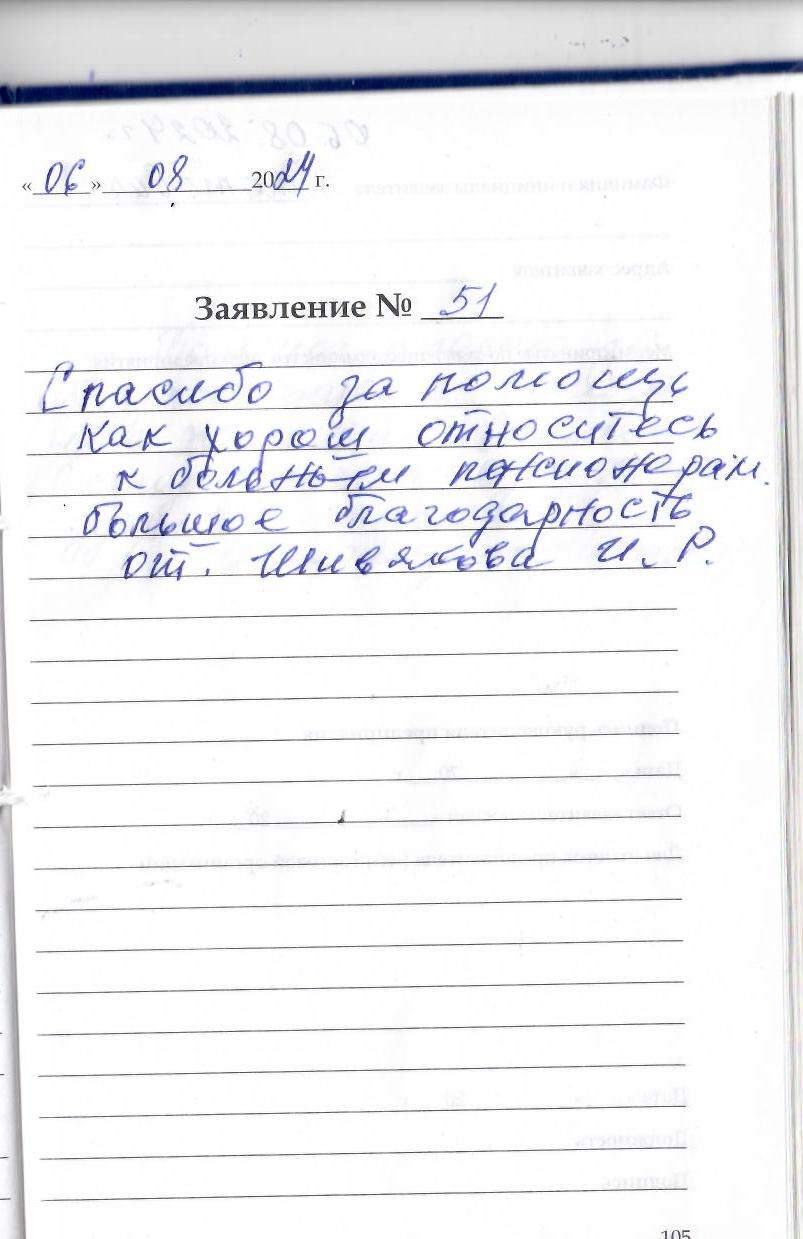 «06» 08 2024 г.
Заявление № 51
Спасибо за помощь
как хорош относитесь
к больным пенсионерам.
большое благодарность
от. Шивякова И. Р.
105